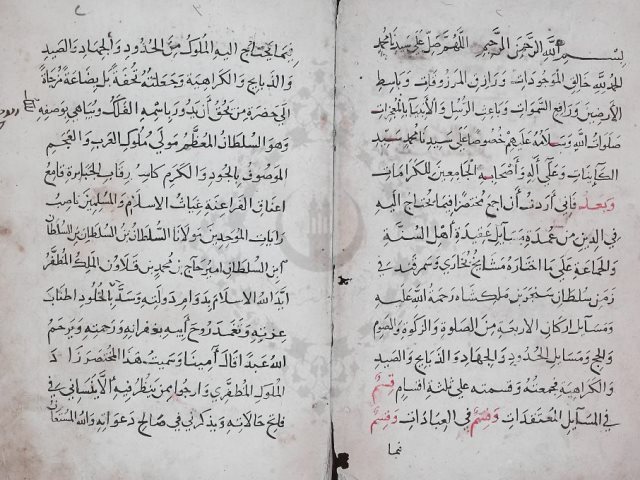 بسم الله الرحمن الرحيم اللهم صل على سيدنا محمد
الحمد لله خالق الموجودات ورازق المرزوقات وباسط
الأرضين ورافع السموات وباعث الرسل والأنبياء بالمعجزات
صلوات الله وسلامه عليهم خصوصا على سيدنا محمد سيد
الكاينات وعلى آله وأصحابه الجامعين للكرامات
وبعد فاني أردت أن اجمع مختصرا فيما يحتاج اليه
في الدين من عمدة مسايل عقيدة أهل السنة
والجماعة على ما اختاره مشايخ بخارى وسمرقند في
زمن سلطان سنجر بن ملكشاه رحمة الله عليه
ومسايل اركان الاربعة من الصلوة والزكوة والصوم
والحج ومسايل الحدود والجهاد والذبايح والصيد
والكراهية فجمعته وقسمته على ثلثة اقسام قسم
في المسايل المعتقدات وقسم في العبادات وقسم
فيما
فيما يحتاج اليه الملوك من الحدود والجهاد والصيد
والذبايح والكراهية وجعلته تحفة بل بضاعة مزجاة
الى حضرة من يحق ان يدور باسمه الفلك ويباهي بوصفه
وهو السلطان المعظم مولى ملوك العرب والعجم
الموصوف بالجود والكرم كاسر رقاب الجبابرة قامع
اعناق الفراعنة غياث الاسلام والمسلمين ناصب
رايات الموحدين مولانا السلطان بن السلطان بن السلطان
ابن السلطان امير حاج بن محمد بن قلاوون الملك المظفر
ايد الله الاسلام بدوام دولته وسد بالخلود اطناب
عزته وتغمد روح أبيه بغفرانه ورحمته ويرحم
الله عبدا قال آمينا وسميت هذا المختصر زاد
الملوك المظفري وارجوا ممن ينظر فيه ألا ينساني في
حالاته ويذكرني في صالح دعواته والله المستعان